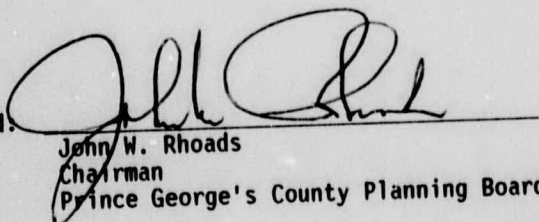 John W. Rhoads
Chairman
Prince George's County Planning Board